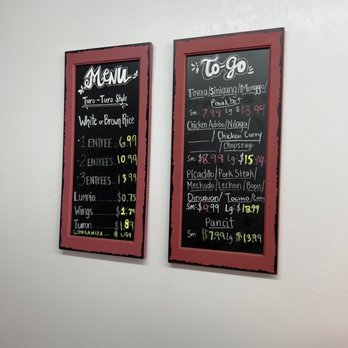 Menu
Turo-Turo Style
White or Brown Rice
1 ENTREE... 6.99
2 ENTREES... 10.99
3 ENTREES... 13.99
Lumpia ... $0.75
Wings ...
Turon ... $1.89
LONGANIZA ... $1.99
To-go
Tinola/Sinigang/Monggo/
Pinakbet
Sm: 7.99 Lg: $13.99
Chicken Adobo/Nilaga/
Chicken Curry
/Chopseuy
Sm: $8.99 Lg: $15.99
Picadillo/Pork Steak/
Mechado/Lechon/Bopis/
Dinuguan/Tocino/
Sm: $9.99 Lg:
Pancit
Sm: $7.99 Lg: $13.99